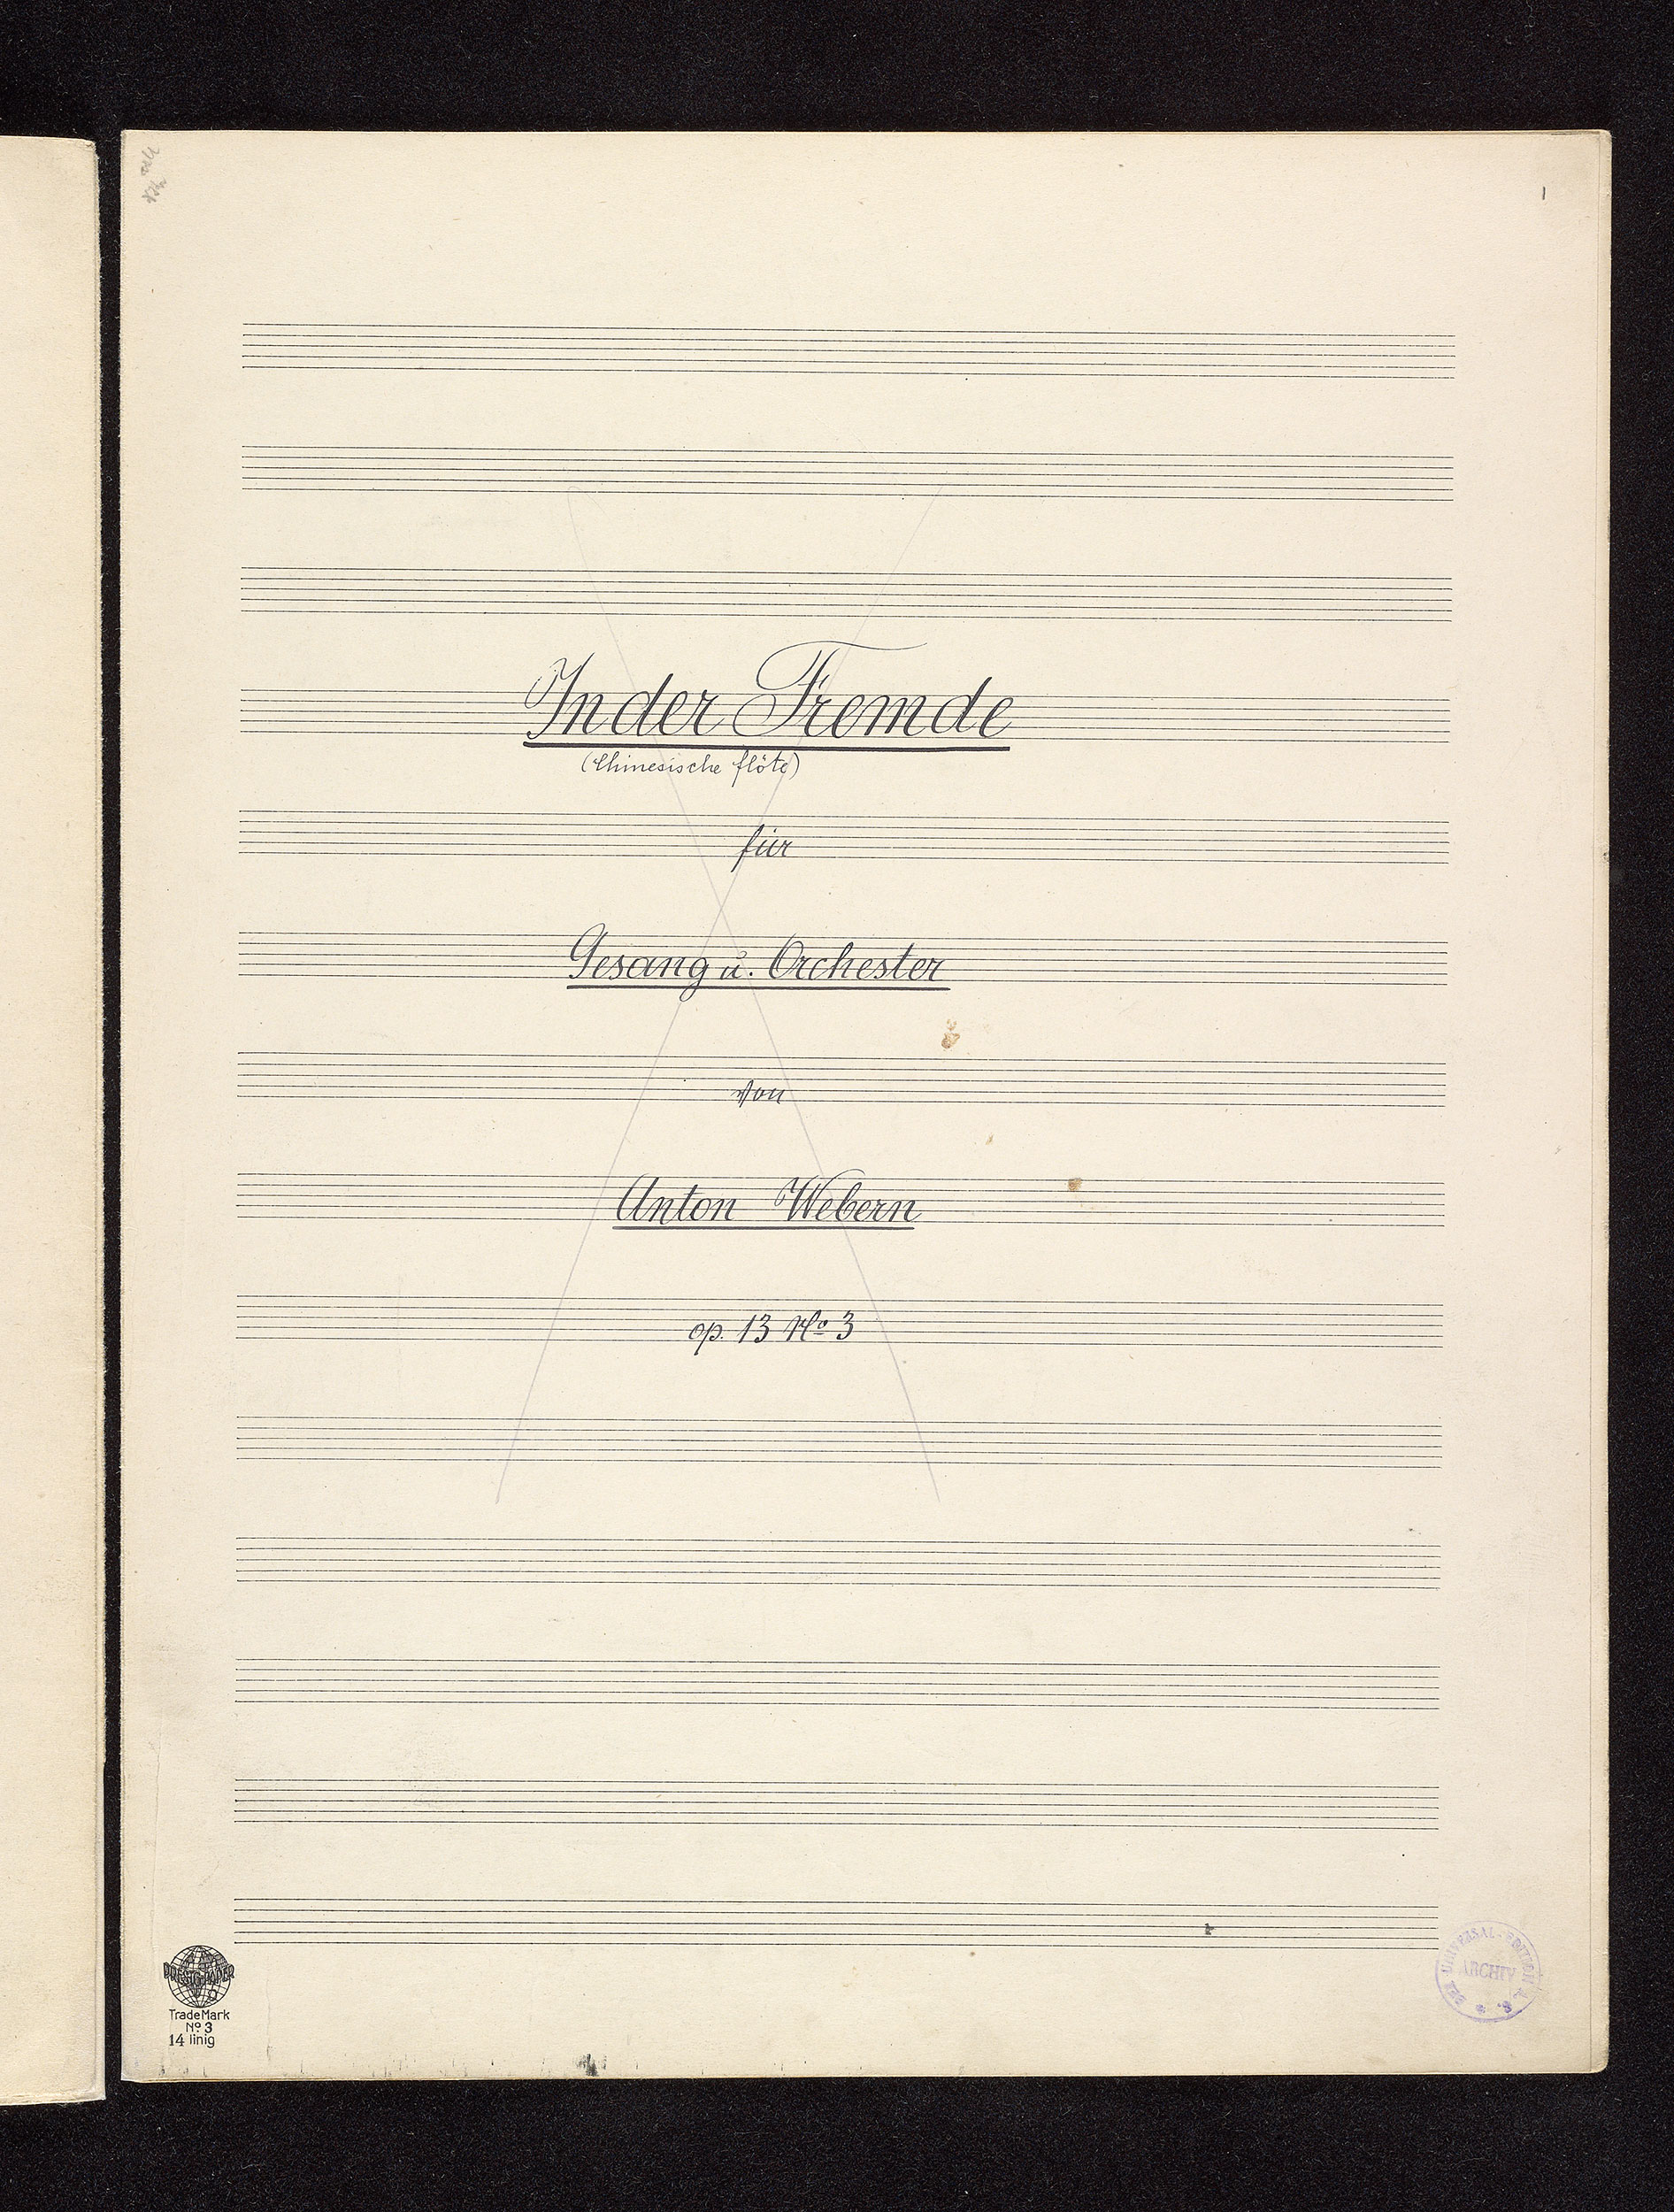 1
In der Fremde
(Chinesische flöte)
für
Gesang u. Orchester
von
Anton Webern
op. 13 No 3
PRESTO-PAPER
Trade Mark
No 3
14 linig
UNIVERSAL-EDITION A. G.
ARCHIV